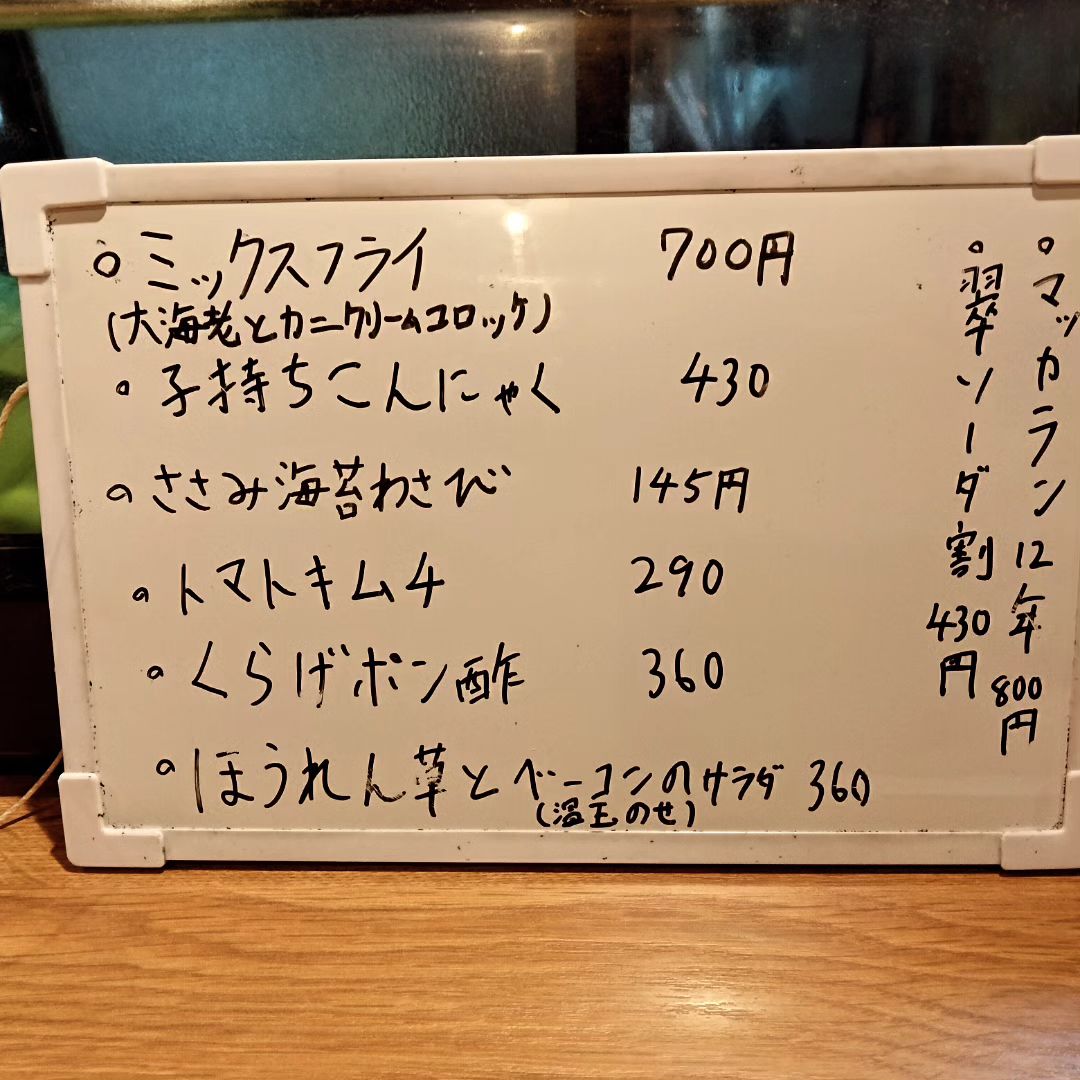 ミックスフライ 700円
(大海老とカニクリームコロッケ)
子持ちこんにゃく 430
ささみ海苔わさび 145円
トマトキムチ 290
くらげポン酢 360
ほうれん草とベーコンのサラダ 360
(温玉のせ)
マッカラン12年 800円
翠ソーダ割 430円